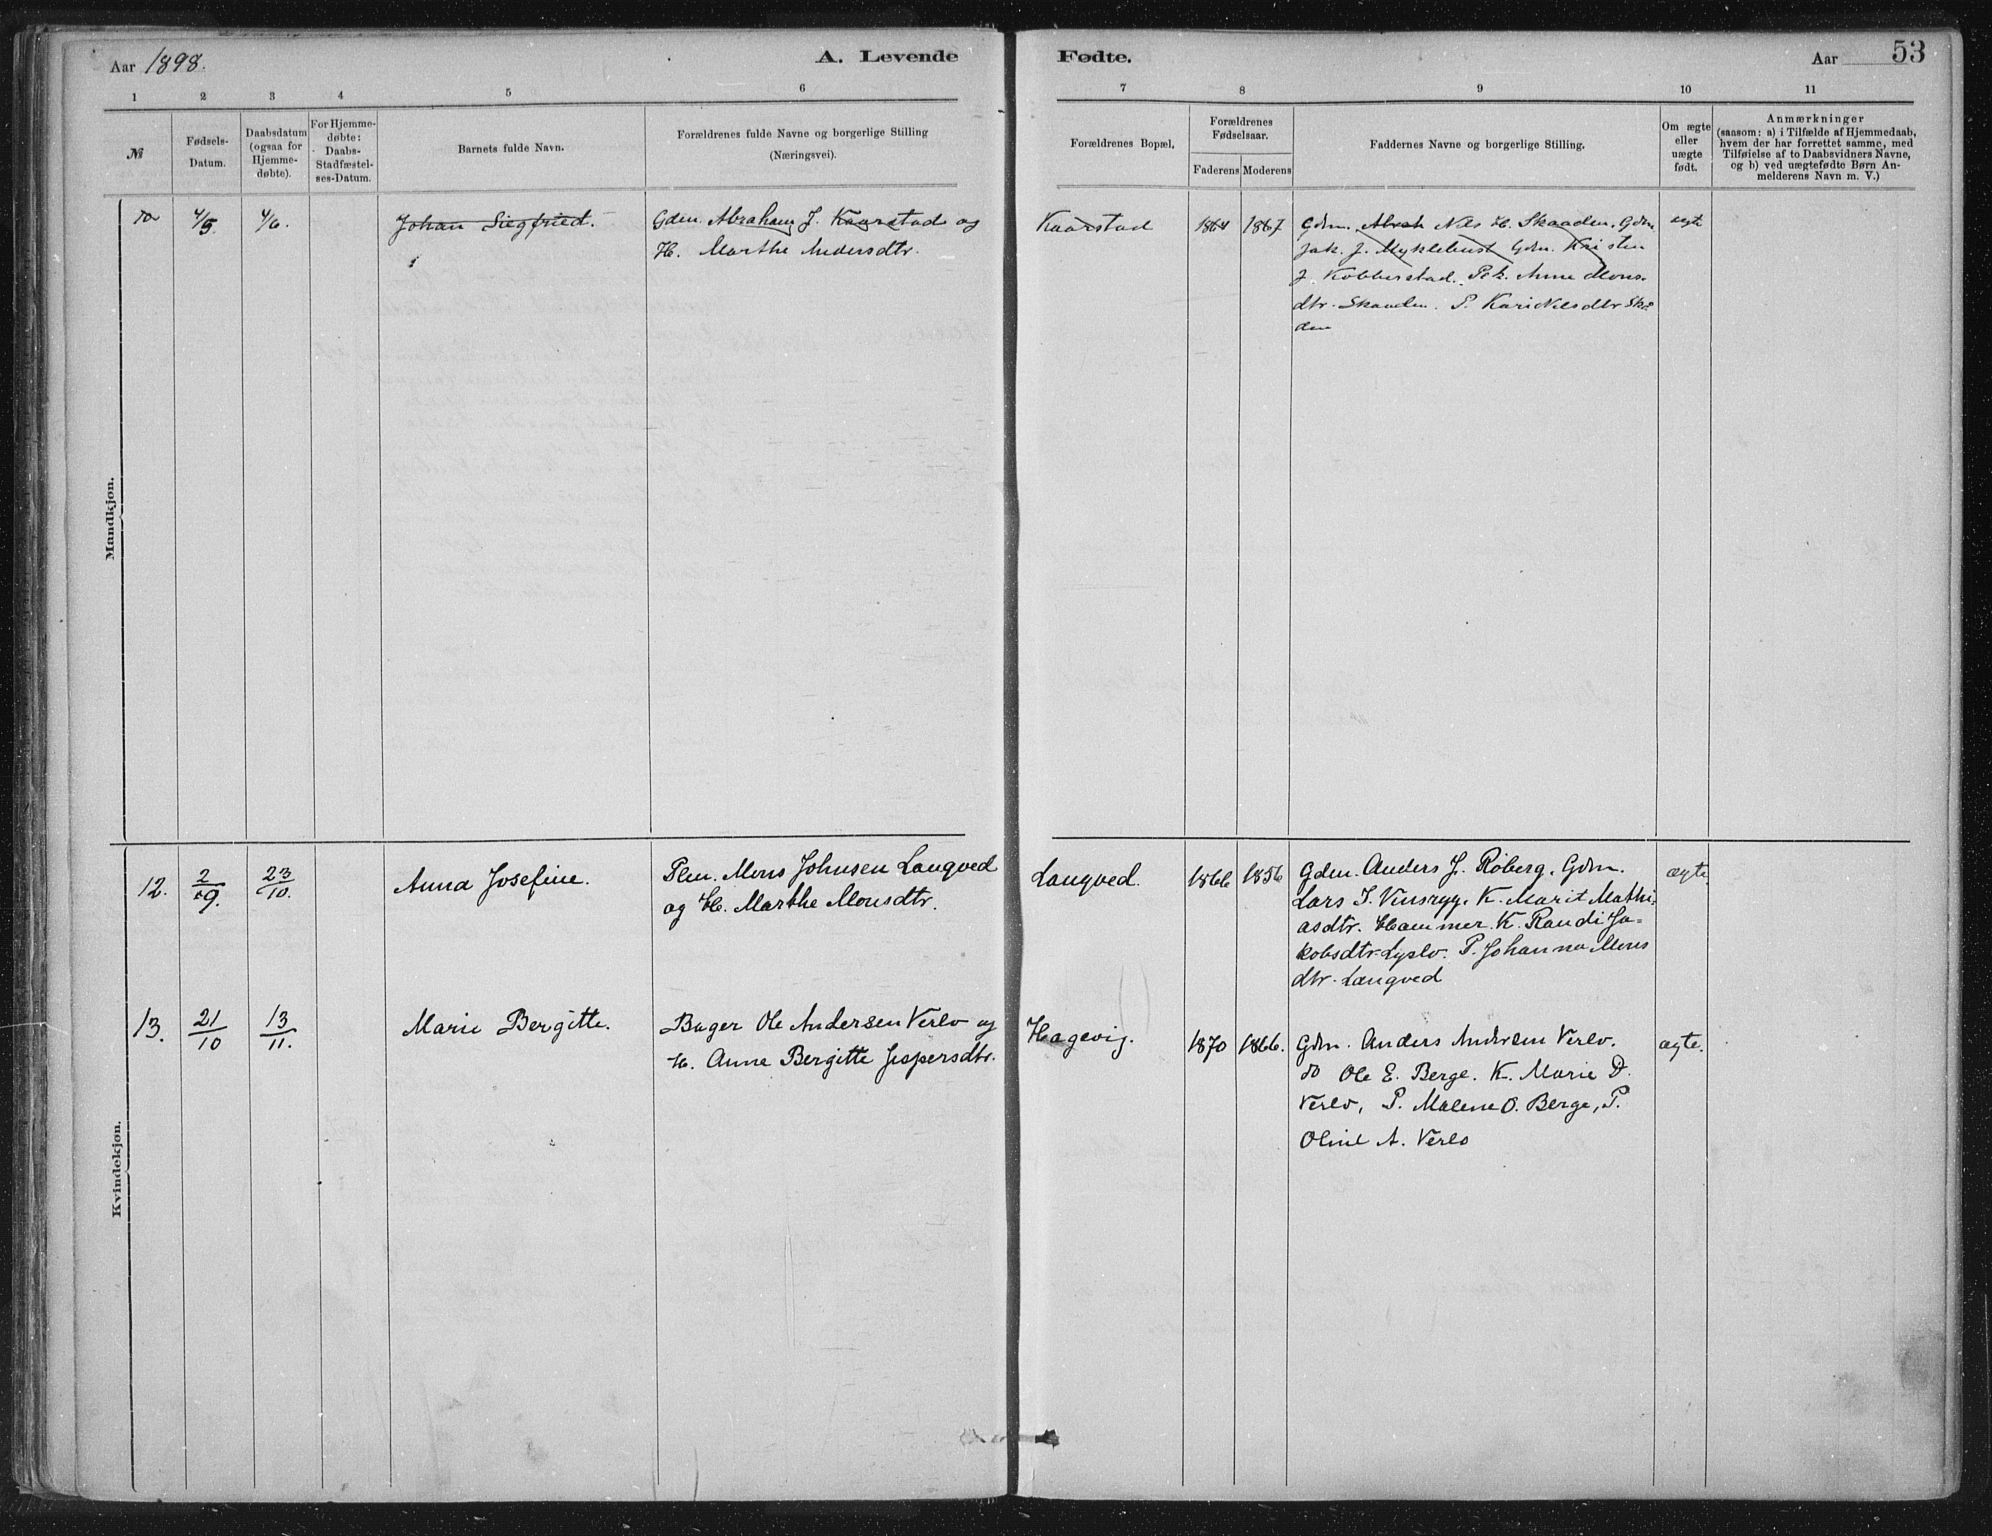 Aar 1898.
A. Levende
Fødte.
Aar
53
1 2 3 4 5 6 7 8 9 10 11
№
Fødsels-
Datum.
Daabsdatum
(ogsaa for
Hjemme-
døbte).
For Hjemme-
døbte:
Daabs-
Stadfæstel-
ses-Datum.
Barnets fulde Navn.
Forældrenes fulde Navne og borgerlige Stilling
(Næringsvei).
Forældrenes Bopæl,
Forældrenes
Fødselsaar.
Faderens Moderens
Faddernes Navne og borgerlige Stilling.
Om ægte
eller
uægte
født.
Anmærkninger
(saasom: a) i Tilfælde af Hjemmedaab,
hvem der har forrettet samme, med
Tilføielse af to Daabsvidners Navne,
og b) ved uægtefødte Børn An-
melderens Navn m. V.)
Mandkjøn.
4/5. 4/6.
Johan Siegfried.
Gdm. Abraham J. Kaarstad og
H. Marthe Andersdtr.
Kaarstad
1864 1867
Gdm. Nils H. Skaaden. Gdm
Jak. J. Myklebust Gdm. Kristen
J. Kobberstad. Pek. Anne Mons-
dtr. Skaaden. P. Kari Nilsdtr Skaa
den
ægte
Kvindekjøn.
12.
2/9.
23/10.
Anna Josefine.
Mons Johnsen Langved
og H. Marthe Monsdtr.
Langved.
1866 1856
Gdm. Anders J. Røberg. Gdm.
Lars J. Vinsryg. K. Marit Mathi-
asdtr. Hammer. K. Randi Ja-
kobsdtr Lyslo. P. Johanna Mons
dtr. Langved
ægte.
13.
21/10
13/11.
Marie Bergitte.
Bager Ole Andersen Verlo og
H. Anne Bergitte Jespersdtr.
Hagevig.
1870 1866.
Gdm. Anders Andersen Verlo.
do Ole E. Berge. K. Marie D.
Verlo, P. Malene O. Berge, P.
Oline A. Verlo
ægte.